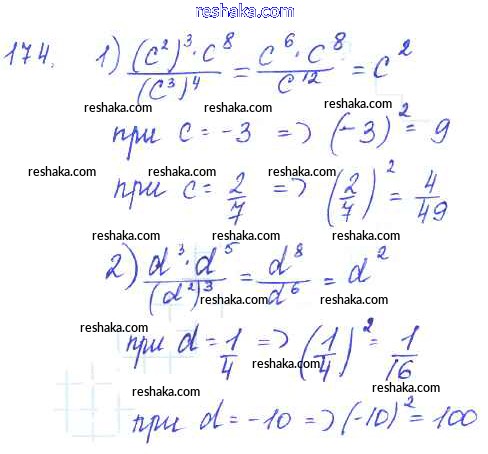 www.reshaka.com
174. 1) (c²)³·c⁸/(c³)⁴ = c⁶·c⁸/c¹² = c²
reshaka.com reshaka.com reshaka.com
при c = -3 => (-3)² = 9
reshaka.com reshaka.com reshaka.com
при c = 2/7 => (2/7)² = 4/49
reshaka.com reshaka.com reshaka.com
2) d³·d⁵/(d²)³ = d⁸/d⁶ = d²
reshaka.com reshaka.com reshaka.com
при d = 1/4 => (1/4)² = 1/16
reshaka.com reshaka.com reshaka.com
при d = -10 => (-10)² = 100
reshaka.com reshaka.com reshaka.com